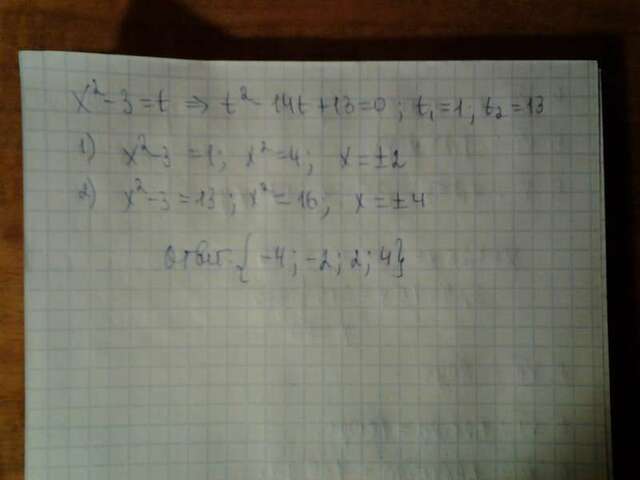 x² - 3 = t ⇒ t² - 14t + 13 = 0 ; t₁ = 1 ; t₂ = 13
1) x² - 3 = 1 ; x² = 4 ; x = ±2
2) x² - 3 = 13 ; x² = 16 ; x = ±4
Ответ: { -4 ; -2 ; 2 ; 4 }